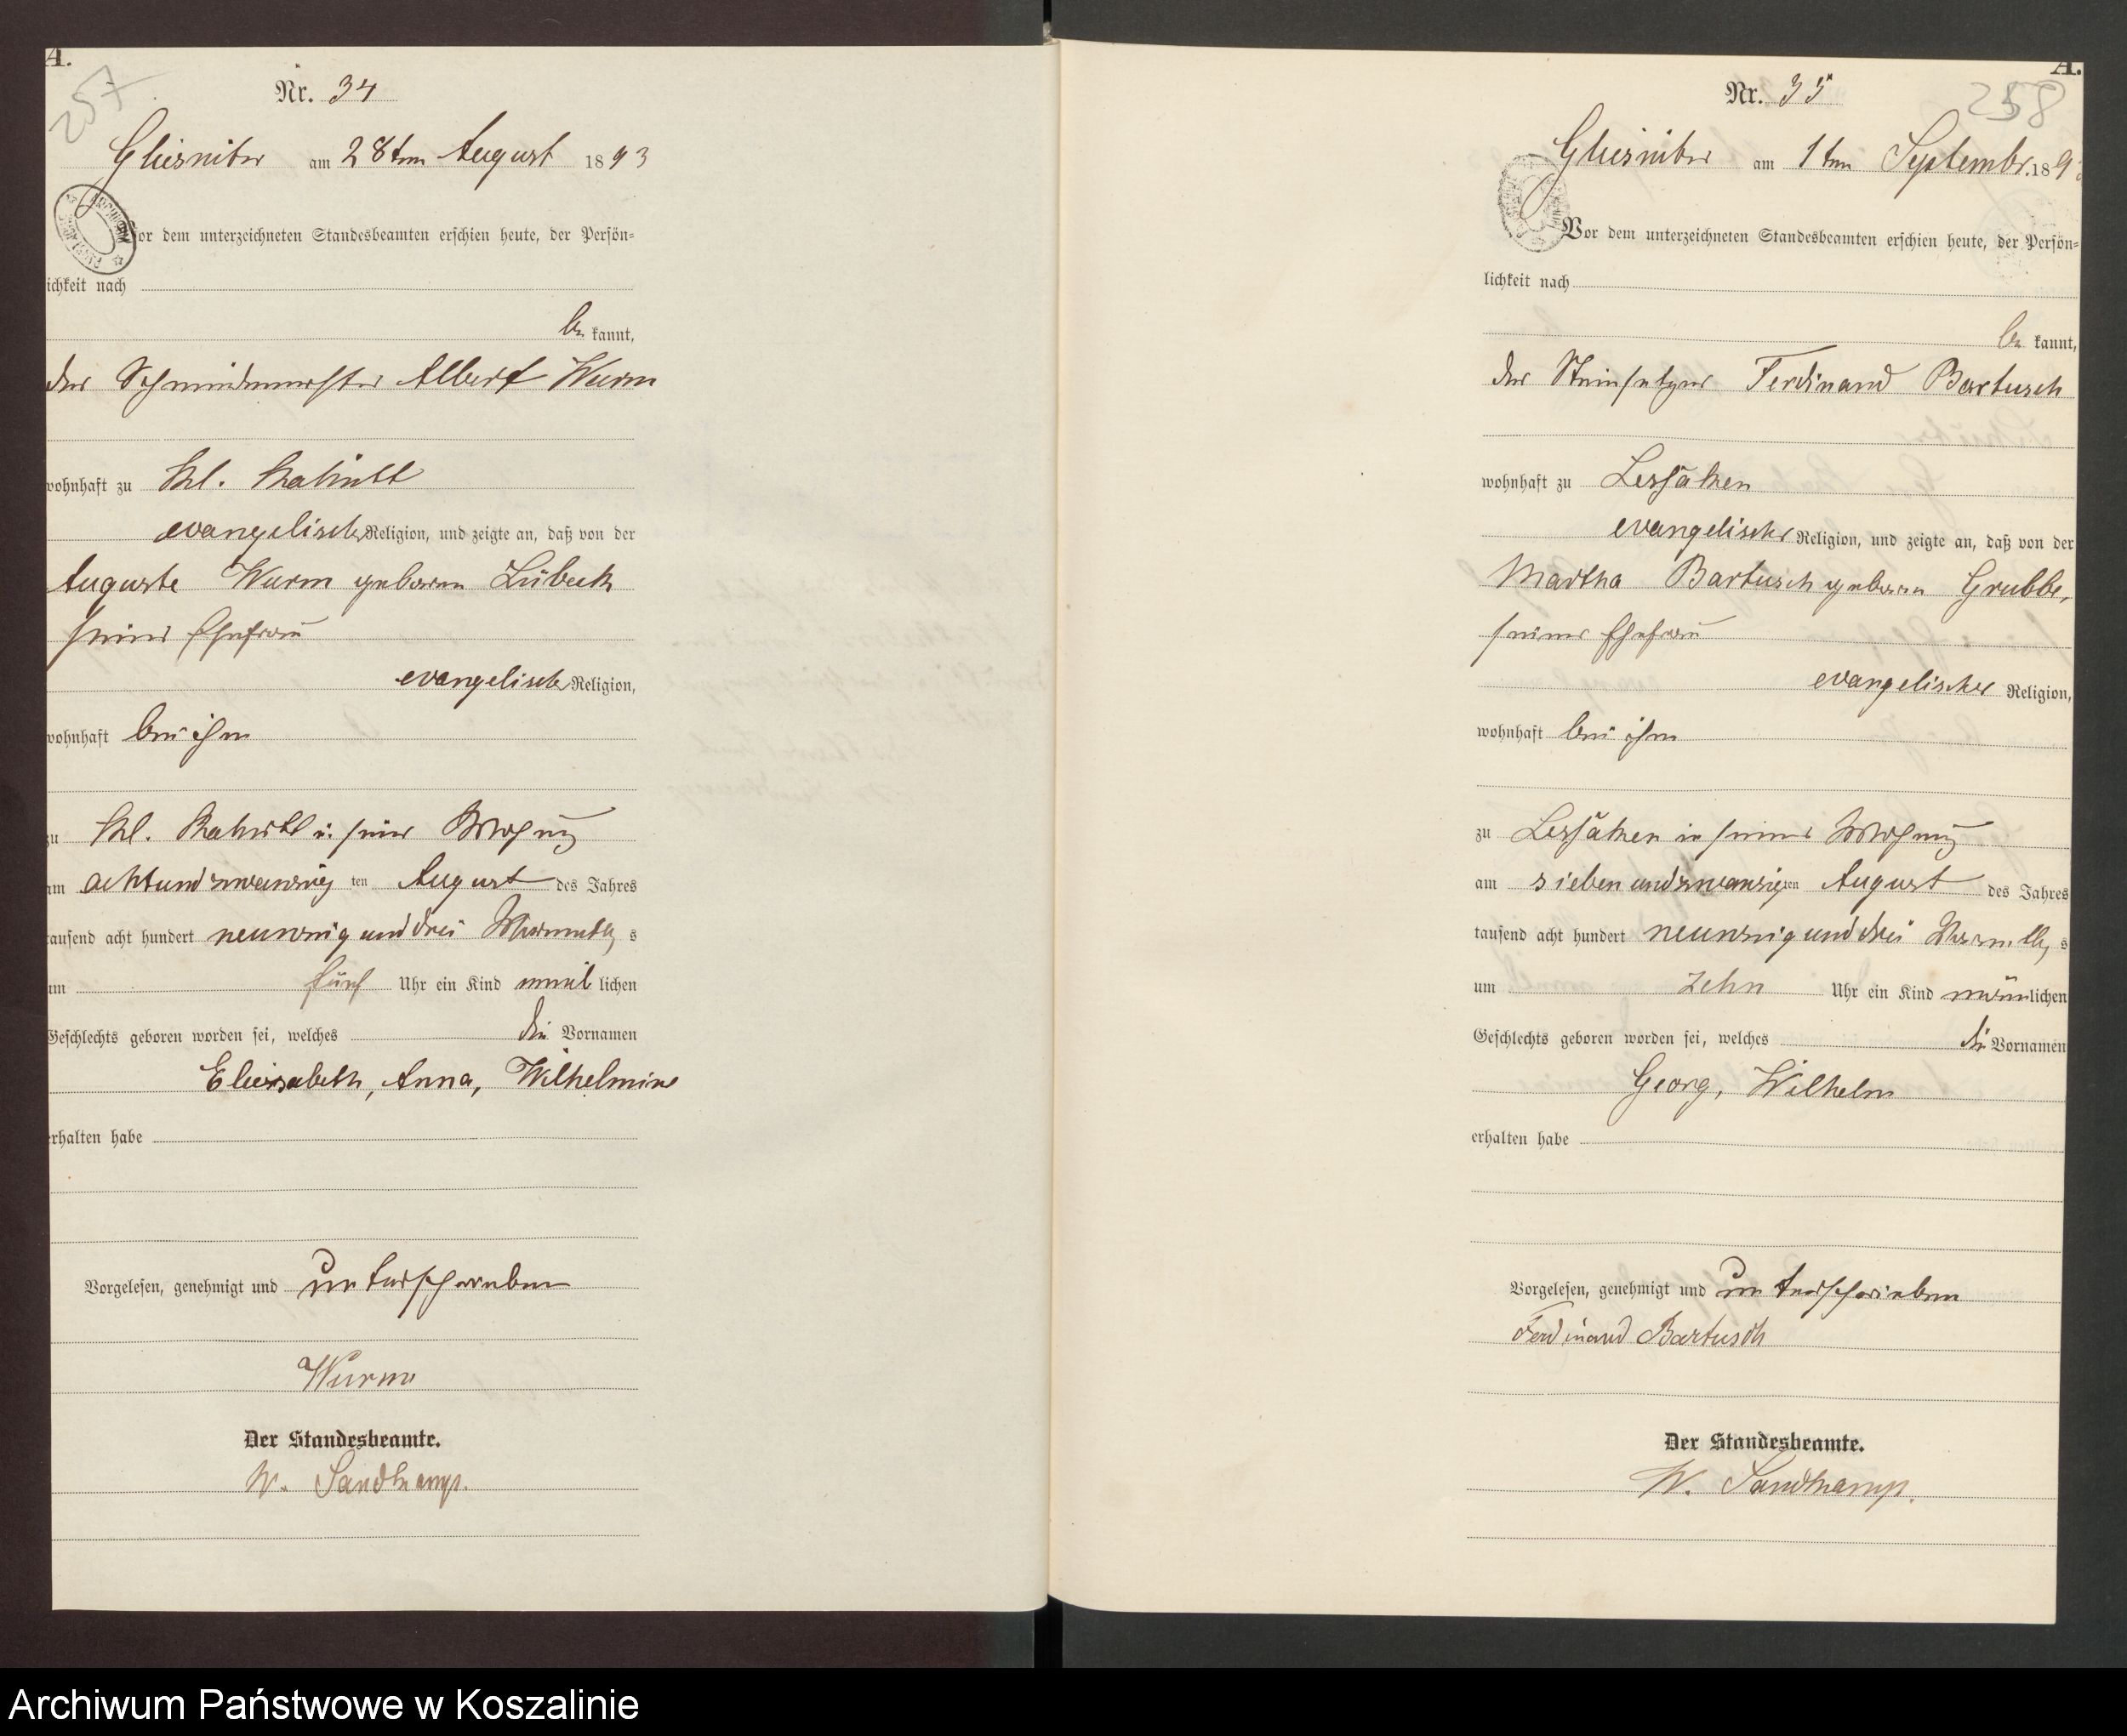 A.
257
Nr. 34
Gliesnitz am 28ten August 1893
Vor dem unterzeichneten Standesbeamten erschien heute, der Persön-
lichkeit nach
be kannt,
der Schmiedemeister Albert Wurm
wohnhaft zu Kl.
evangelischer Religion, und zeigte an, daß von der
Auguste Wurm geboren Lübeck
seiner Ehefrau
evangelischer Religion,
wohnhaft bei ihm
zu Kl. in seiner Wohnung
am achtundzwanzig ten August des Jahres
tausend acht hundert neunzig und drei Vormittag s
um fünf Uhr ein Kind weib lichen
Geschlechts geboren worden sei, welches die Vornamen
Eliesabeth, Anna, Wilhelmine
erhalten habe
Vorgelesen, genehmigt und unterschrieben
Wurm
Der Standesbeamte.
W. Sandkamp.
A.
258
Nr. 35
Gliesnitz am 1ten Septembr. 189
Vor dem unterzeichneten Standesbeamten erschien heute, der Persön-
lichkeit nach
be kannt,
der Steinsetzer Ferdinand Bartusch
wohnhaft zu Lessaken
evangelischer Religion, und zeigte an, daß von der
Martha Bartusch geboren Grubbe,
seiner Ehefrau
evangelischer Religion,
wohnhaft bei ihm
zu Lessaken in seiner Wohnung
am siebenundzwanzig ten August des Jahres
tausend acht hundert neunzig und drei Vormittag s
um zehn Uhr ein Kind männ lichen
Geschlechts geboren worden sei, welches die Vornamen
Georg, Wilhelm
erhalten habe
Vorgelesen, genehmigt und unterschrieben
Ferdinand Bartusch
Der Standesbeamte.
W. Sandkamp.
Archiwum Państwowe w Koszalinie